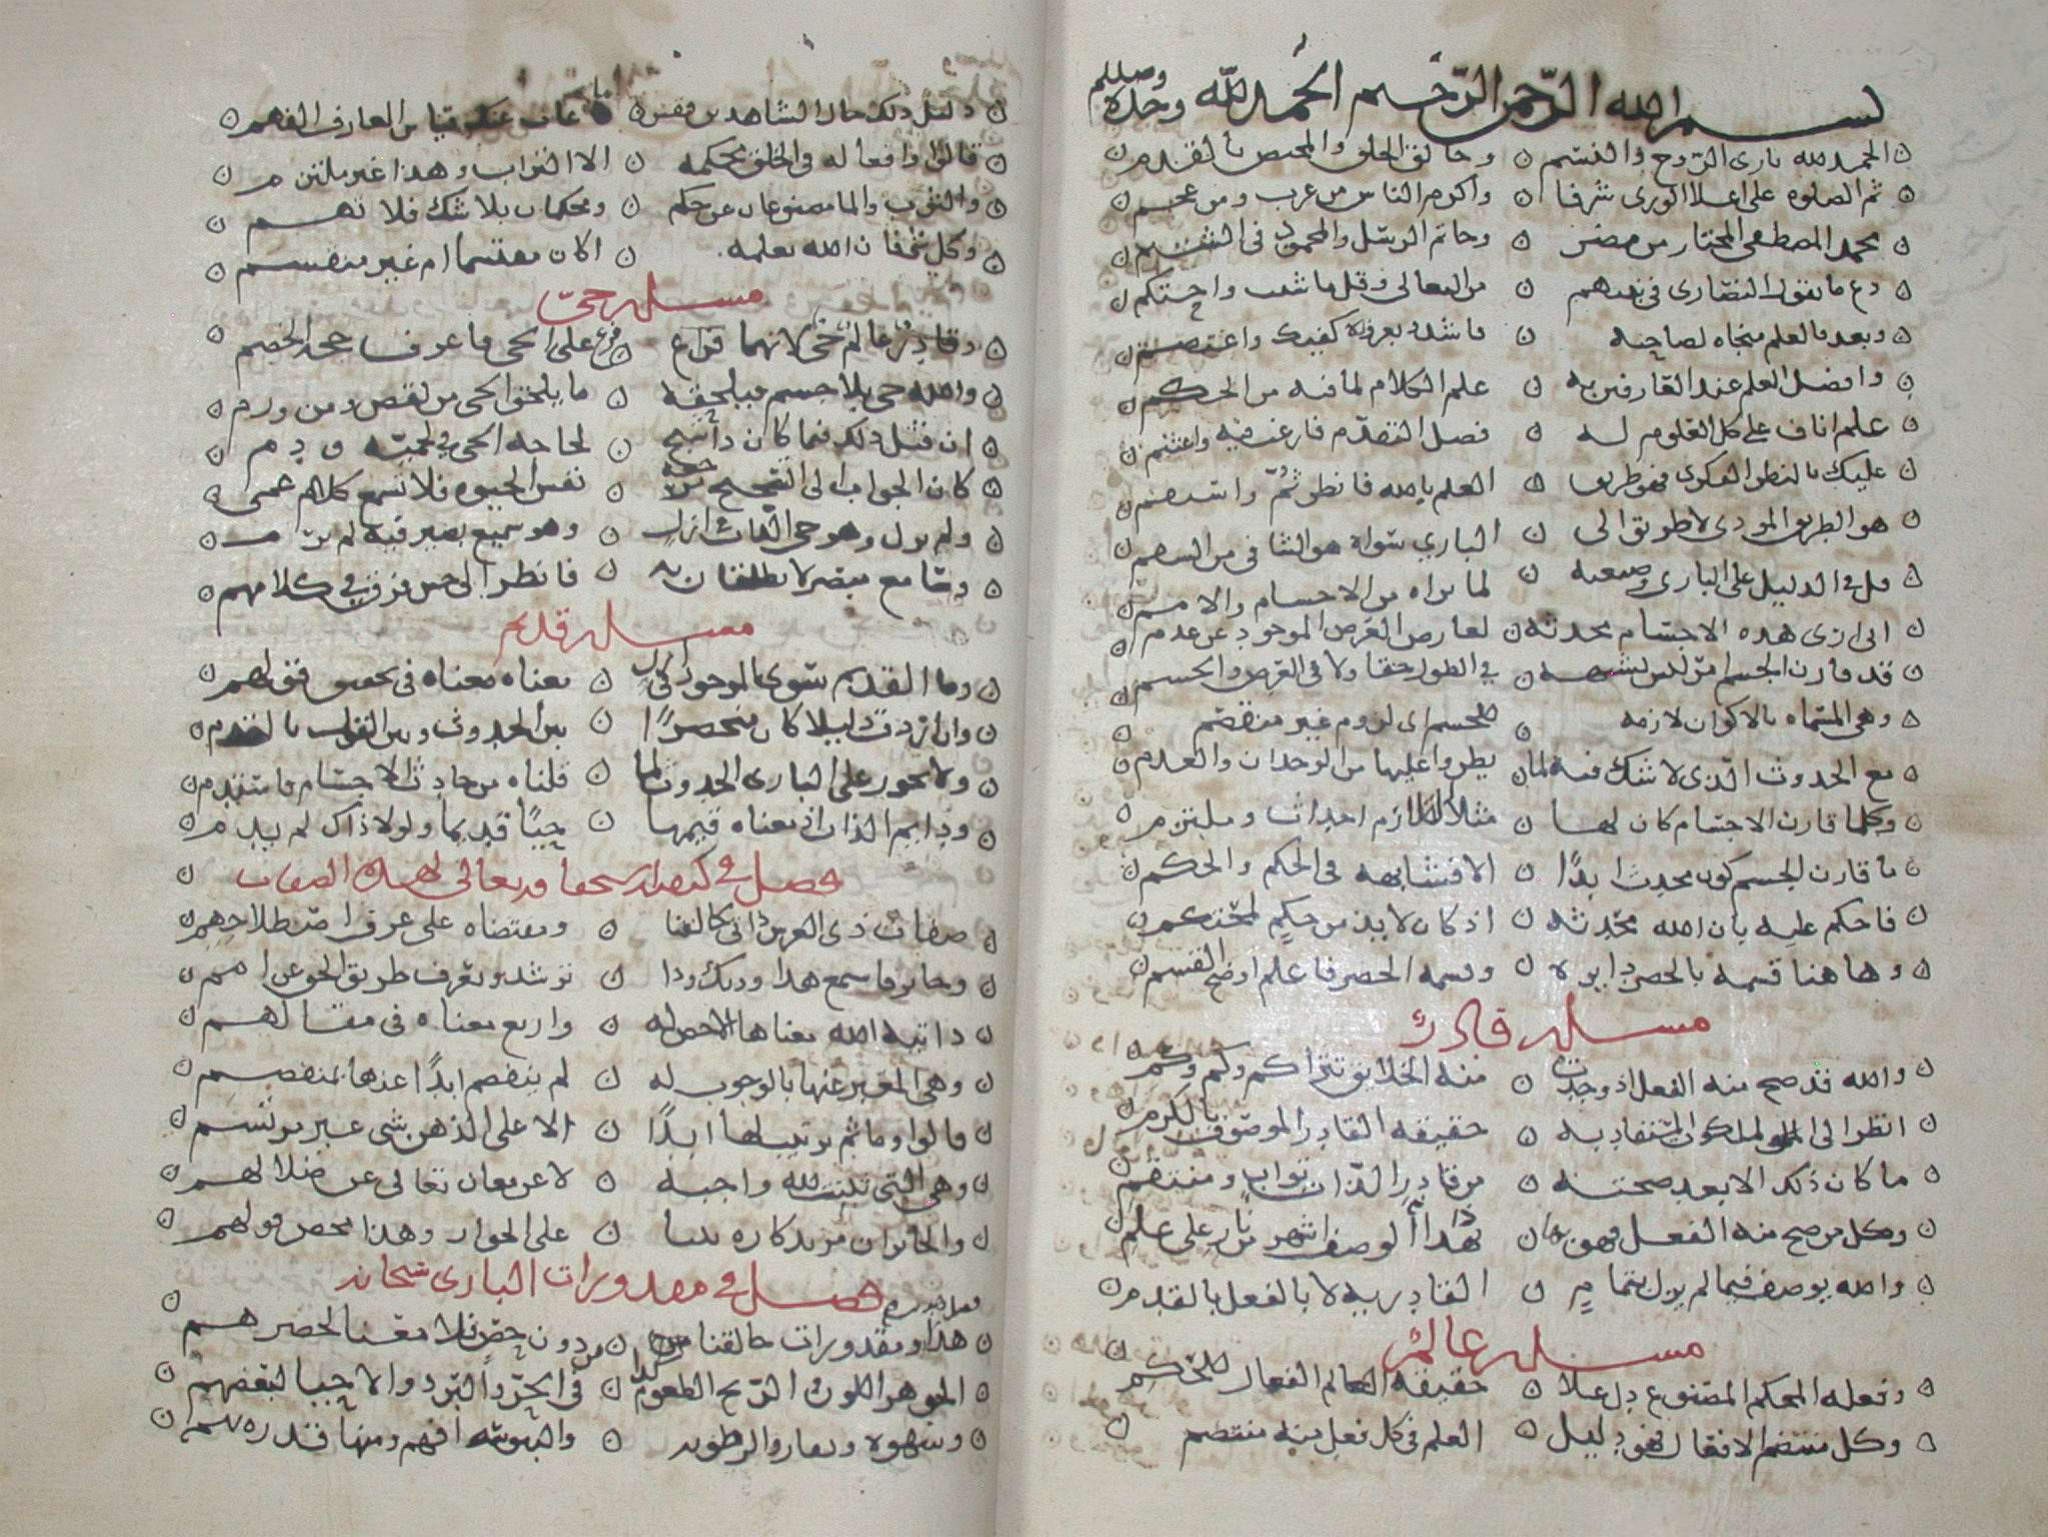 بسم الله الرحمن الرحيم الحمد لله وحده
الحمد لله بارى الروح والنسم وخالق الخلق والمختص بالقدم
ثم الصلوه على اعلا الورى شرفا واكرم الناس من عرب ومن عجم
محمد المصطفى المختار من مضر وخاتم الرسل والمحمود فى الشيم
دع ما تقول النصارى فى نبيهم من التعالى وقل ما شئت واحتكم
وبعد فالعلم منجاه لصاحبه فاشدد بعراه كفيك واعتصم
وافضل العلم عند العارفين به علم الكلام لما فيه من الحكم
علم اناف على كل العلوم له فضل التقدم فارغب فيه واغتنم
عليك بالنظر الفكرى فهو طريق العلم بالله فانظر ثم واستقم
هو الطريق المودى لا طريق الى البارى سواه هو الشافى من السقم
قل فى الدليل على البارى وصنعته لما تراه من الاجسام والامم
انى ارى هذه الاجسام محدثه لعارض العرض الموجود عن عدم
قد قارن الجسم لكن ليس يشبهه فى الطول حقا ولا فى العرض والجسم
وهى المسماه بالاكوان لازمه للجسم اى لزوم غير منفصم
مع الحدوث الذى لا شك فيه لما يطروا عليها من الوجدان والعدم
وكلما قارن الاجسام كان لها مثلا لازم احداث وملتزم
ما قارن الجسم كون محدث ابدًا الا فشابهه فى الحكم والحكم
فاحكم عليه بان الله محدثه اذ كان لا بد من حكم لمحتكم
وها هنا قسمه بالحصر دايره وقسمه الحصر فاعلم اوضح القسم
مسئله قادر
والله قد صح منه الفعل اذ وجدت منه الخلايق تترا كم وكم وكم
انظر الى الملكوت المستفاد به حقيقه القادر الموصوف بالكرم
ما كان ذلك الا بعد صحته من قادر الذات تواب ومنتقم
وكل من صح منه الفعل فهو بهذا الوصف اشهر من نار على علم
والله يوصف فيما لم يزل بتمام القادريه لا بالفعل بالقدم
مسئله عالم
وفعله المحكم المصنوع دل على حقيقه العالم الفعال للحكم
وكل منتظم الافعال فهو دليل العلم فى كل فعل منه منتظم
دليل ذلك حال الشاهدين فقس ما غاب عنك قياس العارف الفهم
قالوا وافعاله فى الخلق محكمه الا التراب وهذا غير ملتزم
والترب والما مصنوعان عن حكم ومحكمان بلا شك فلا تهم
وكل شى فان الله يعلمه اكان منقسما ام غير منقسم
مسئله حى
وقادر عالم حى لانهما فرع على الحى فاعرف حجه الخصم
والله حى بلا جسم فيلحقه ما يلحق الحى من نقص ومن ورم
ان قيل ذلك فيما كان ذا شبح لحاجه الحى فى لحميته ودم
كان الجواب الى التصحيح نفس الحيوه فلا تسمع كلام عمى
ولم يزل وهو حى الذات ازل وهو سميع بصير فيه لم يرم
وسامع مبصر لا يطلقان به فانظر الى حسن فرق فى كلامهم
مسئله قديم
وما القديم سوى الموجود فى ازل معناه معناه فى تحقيق فقههم
وان اردت دليلا كان منحصرًا بين الحدوث وبين القول بالقدم
ولا يجوز على البارى الحدوث لما قلناه من حادث الاجسام فاستقم
ودايم الذات اذ معناه قيمها حيًا قديما ولولا ذاك لم يدم
فصل فى كيفيه استحقاقه تعالى لهذه الصفات
صفات ذى العرش ذاتى لخالقنا ومقتضاه على عرف اصطلاحهم
وجايز فاسمع هذا وذلك وذا ترشد وتعرف طريق الحق عن امم
ذاتيه الله معناها الاخص له واربع معناه فى مقالهم
وهى المعبر عنها بالوجوب له لم ينفصم ابدًا عنها بمنفصم
قالوا وما ثم ترتيب لها ابدًا الا على الذهن بشى غير مرتسم
وهى التى ثبتت لله واجبه لا عن معان تعالى عن ضلالهم
والجايزان مريد كاره على الجواز وهذا محض قولهم
فصل فى مقدورات البارى سبحانه
هذا ومقدورات خالقنا من دون حصر فلا معنا لحصرهم
الجوهر اللون الريح الطعوم كذا فى الحر والبرد والاحيا لبعضهم
وشهوه ونفار والرطوبه واليبوسه افهم ومنها قدره